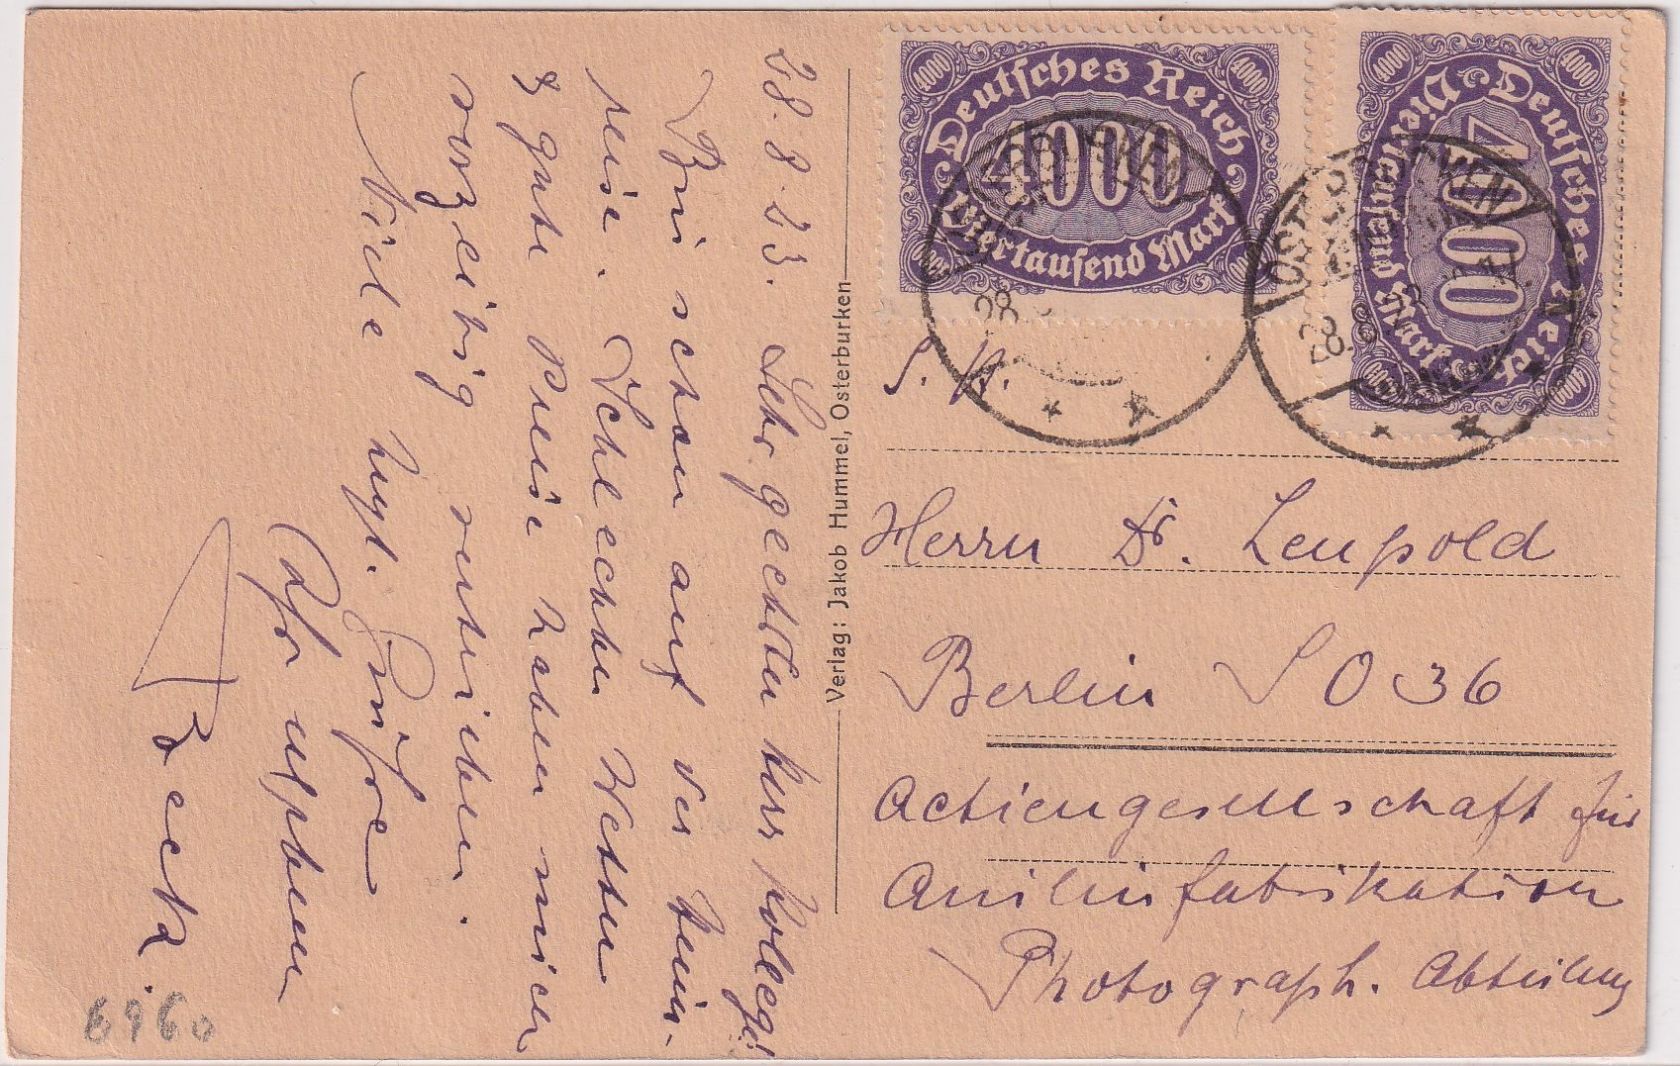 28.8.23. Sehr geehrter Herr Kollege!
Bin schon auf der Heim-
reise. Schlechtes Wetter
& gute Preise haben mich
vorzeitig vertrieben.
Viele hrzl. Grüße
Ihr ergebener
Beck
Verlag: Jakob Hummel, Osterburken
Deutsches Reich
4000
Viertausend Mark
Deutsches Reich
4000
Viertausend Mark
OSTERBURKEN
28.
OSTERBURKEN
28.8.23
S. H.
Herrn Dr. Leupold
Berlin SO 36
Actiengesellschaft für
Anilinfabrikation
Photograph. Abteilung
6960